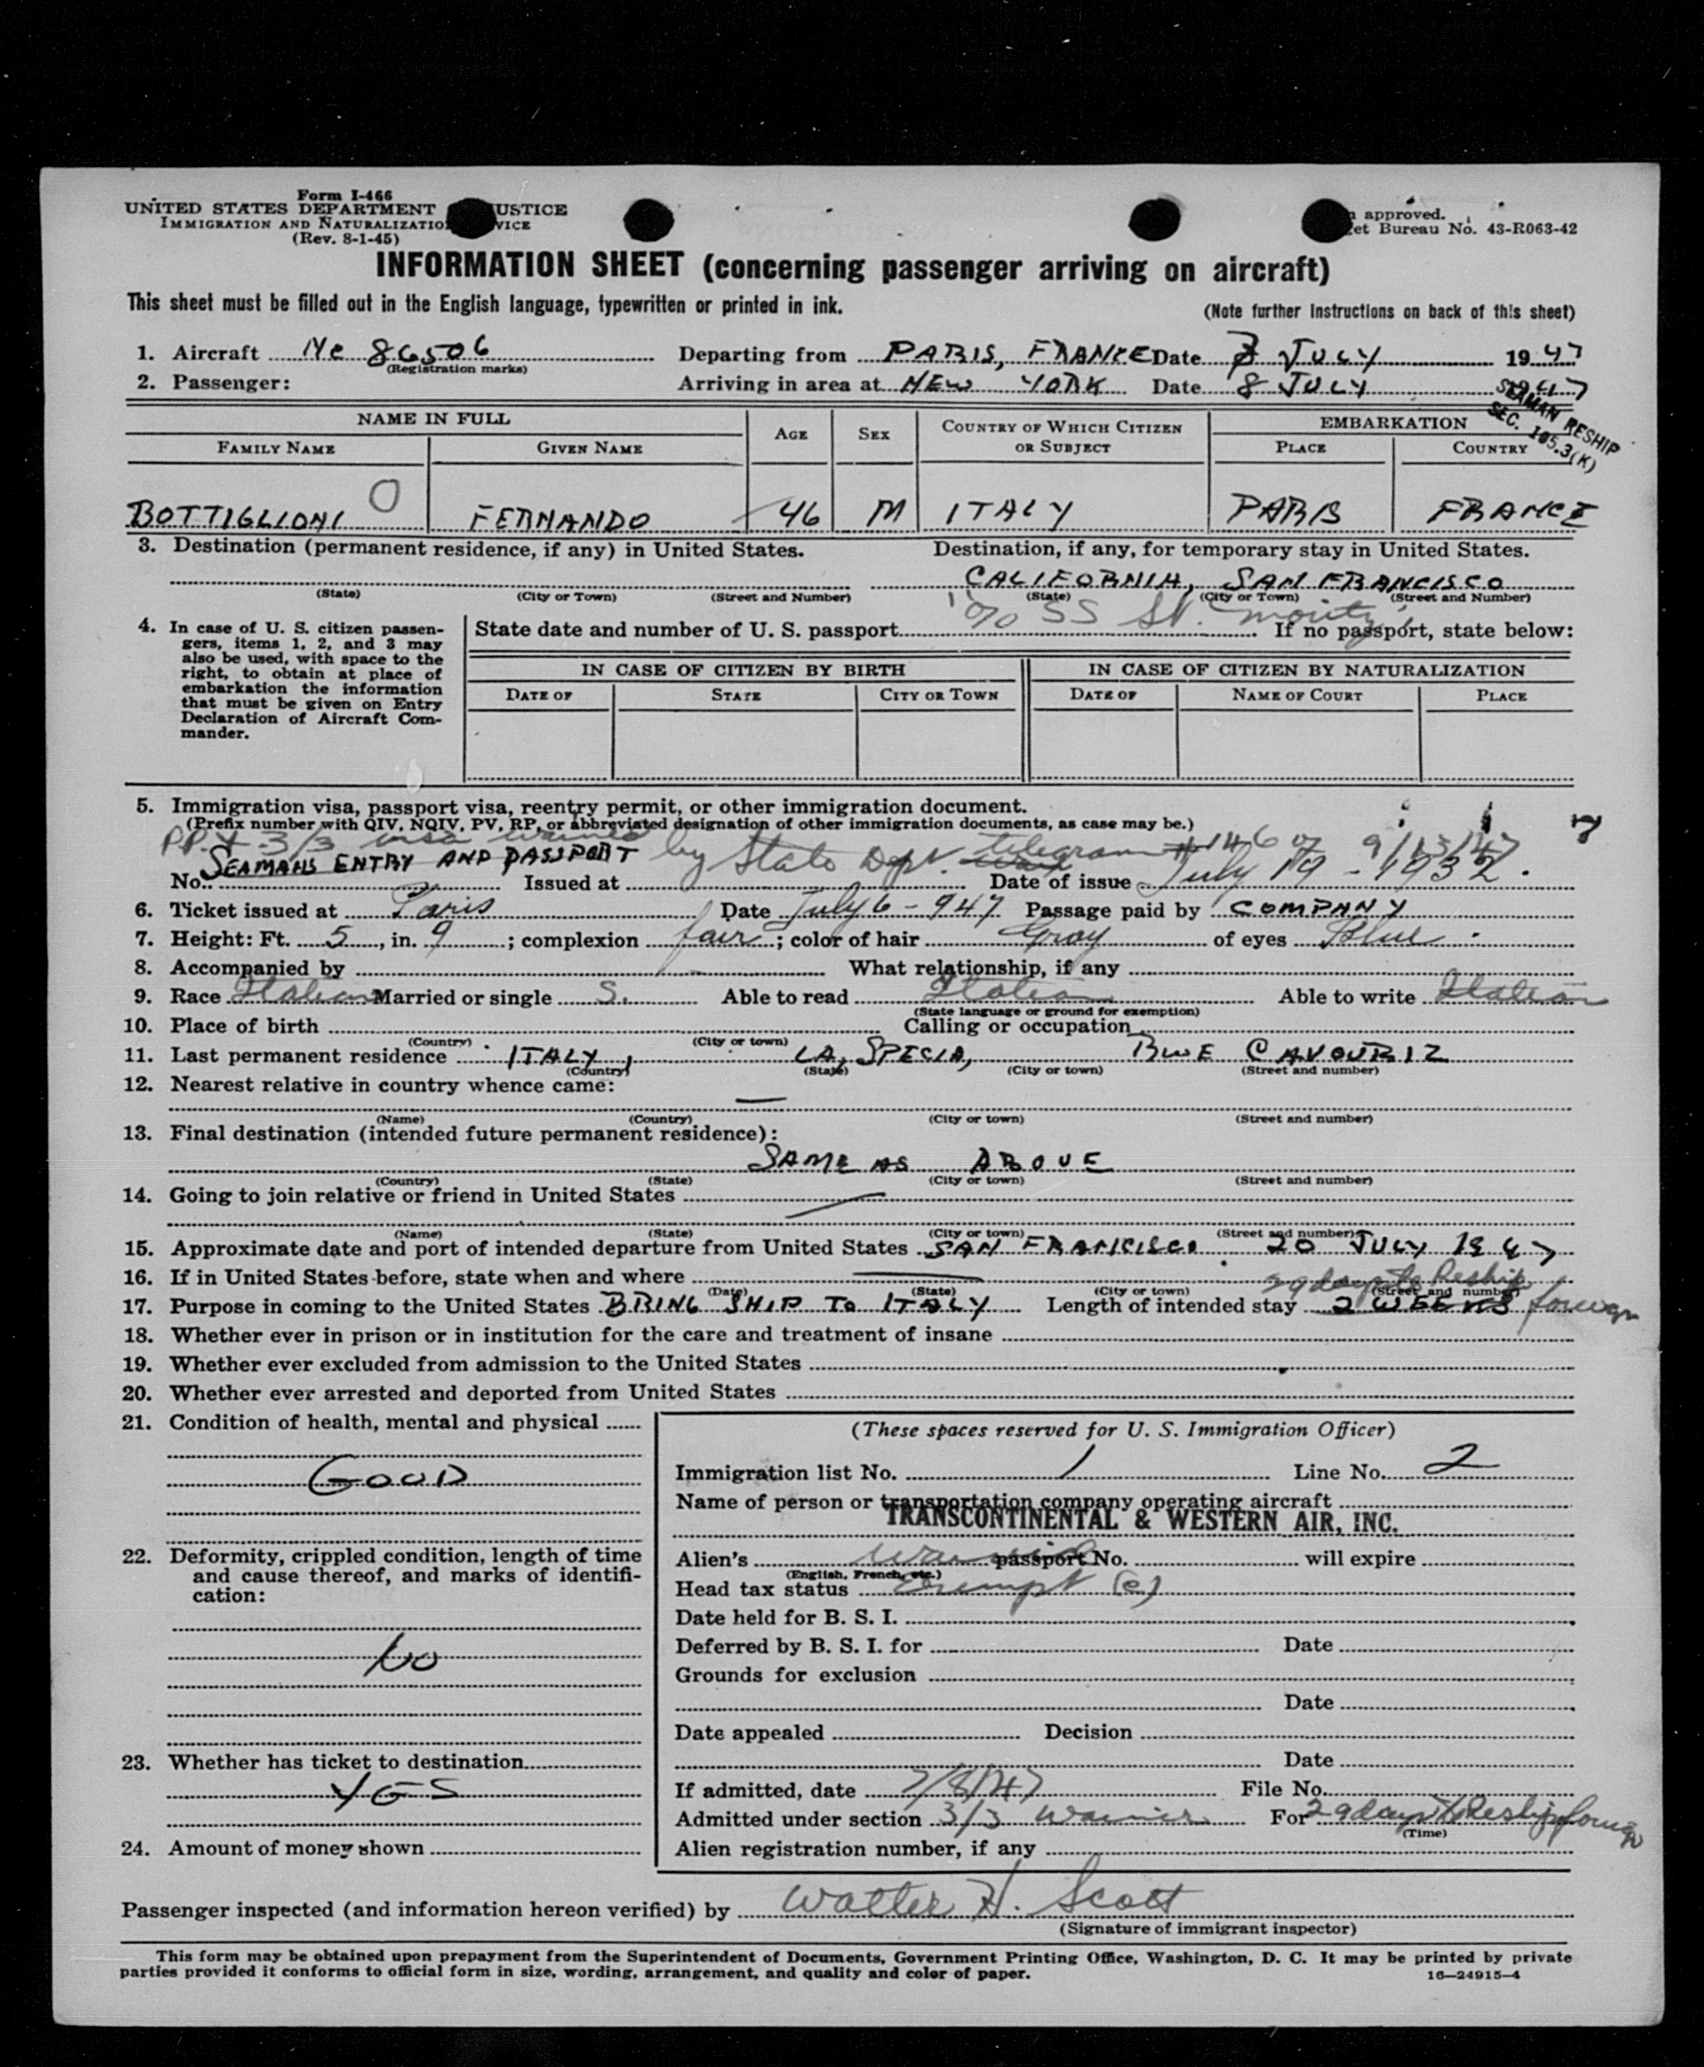 Form I-466
UNITED STATES DEPARTMENT USTICE
IMMIGRATION AND NATURALIZATIO VICE
(Rev. 8-1-45)
approved.
et Bureau No. 43-R063-42
INFORMATION SHEET (concerning passenger arriving on aircraft)
This sheet must be filled out in the English language, typewritten or printed in ink. (Note further instructions on back of this sheet)
1. Aircraft Nc 86506 Departing from PARIS, FRANCE Date 7 JULY 1947
(Registration marks)
2. Passenger: Arriving in area at NEW YORK Date 8 JULY 1947
SEAMAN RESHIP
SEC. 105.3(K)
NAME IN FULL AGE SEX COUNTRY OF WHICH CITIZEN OR SUBJECT EMBARKATION
FAMILY NAME GIVEN NAME PLACE COUNTRY
BOTTIGLIONI FERNANDO 46 M ITALY PARIS FRANCE
3. Destination (permanent residence, if any) in United States. Destination, if any, for temporary stay in United States.
CALIFORNIA, SAN FRANCISCO
(State) (City or Town) (Street and Number) (State) (City or Town) (Street and Number)
c/o SS St.
4. In case of U. S. citizen passengers, items 1, 2, and 3 may also be used, with space to the right, to obtain at place of embarkation the information that must be given on Entry Declaration of Aircraft Commander.
State date and number of U. S. passport If no passport, state below:
IN CASE OF CITIZEN BY BIRTH IN CASE OF CITIZEN BY NATURALIZATION
DATE OF STATE CITY OR TOWN DATE OF NAME OF COURT PLACE
5. Immigration visa, passport visa, reentry permit, or other immigration document.
(Prefix number with QIV, NQIV, PV, RP, or abbreviated designation of other immigration documents, as case may be.)
PP. + 3/3 visa waived by State Dept. telegram
SEAMANS ENTRY AND PASSPORT
No. Issued at Date of issue July 19 - 1932.
6. Ticket issued at Paris Date July 6 - 947 Passage paid by COMPANY
7. Height: Ft. 5, in. 9; complexion fair; color of hair Gray of eyes Blue
8. Accompanied by What relationship, if any
9. Race Italian Married or single S. Able to read Italian Able to write Italian
(State language or ground for exemption)
10. Place of birth Calling or occupation
(Country) (City or town)
11. Last permanent residence ITALY, LA, SPECIA, RUE CAVOUR 12
(Country) (State) (City or town) (Street and number)
12. Nearest relative in country whence came:
—
(Name) (Country) (City or town) (Street and number)
13. Final destination (intended future permanent residence):
SAME AS ABOVE
(Country) (State) (City or town) (Street and number)
14. Going to join relative or friend in United States
(Name) (State) (City or town) (Street and number)
15. Approximate date and port of intended departure from United States SAN FRANCISCO 20 JULY 1947
16. If in United States before, state when and where
(Date) (State) (City or town) (Street and number)
29 days to Reship foreign
17. Purpose in coming to the United States BRING SHIP TO ITALY Length of intended stay 2 WEEKS
18. Whether ever in prison or in institution for the care and treatment of insane
19. Whether ever excluded from admission to the United States
20. Whether ever arrested and deported from United States
21. Condition of health, mental and physical
GOOD
22. Deformity, crippled condition, length of time and cause thereof, and marks of identification:
NO
23. Whether has ticket to destination
YES
24. Amount of money shown
(These spaces reserved for U. S. Immigration Officer)
Immigration list No. 1 Line No. 2
Name of person or transportation company operating aircraft
TRANSCONTINENTAL & WESTERN AIR, INC.
Alien's waived passport No. will expire
(English, French, etc.)
Head tax status exempt (e)
Date held for B. S. I.
Deferred by B. S. I. for Date
Grounds for exclusion
Date
Date appealed Decision
Date
If admitted, date 7/8/47 File No.
Admitted under section 3/3 waiver For 29 days to Reship foreign
(Time)
Alien registration number, if any
Passenger inspected (and information hereon verified) by Walter H. Scott
(Signature of immigrant inspector)
This form may be obtained upon prepayment from the Superintendent of Documents, Government Printing Office, Washington, D. C. It may be printed by private
parties provided it conforms to official form in size, wording, arrangement, and quality and color of paper. 16—24915-4